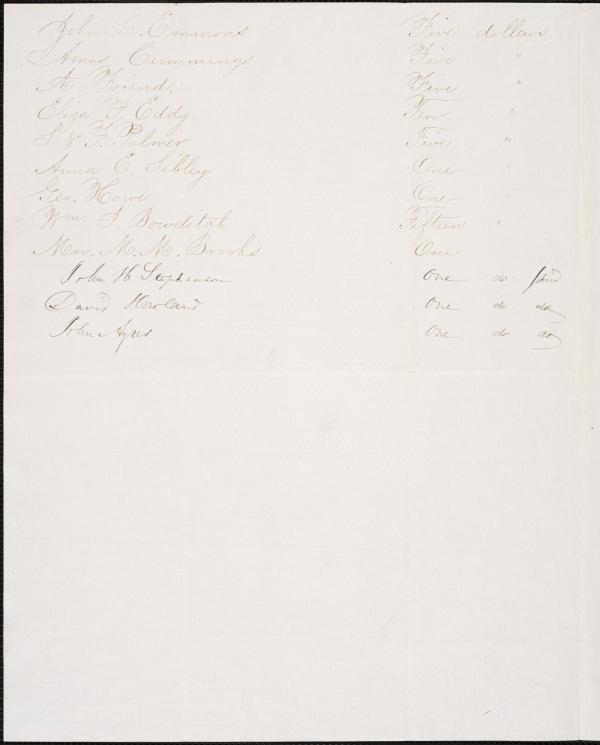 John L. Emmons Five dollars
Amos Cummings Five "
A Friend. Five "
Eliza F. Eddy. Ten "
S. & F. Palmer Five "
Anna E. Sibley One "
Geo. Howe One "
Wm. I. Bowditch Fifteen "
Mrs. M. M. Brooks One
John H Stephenson One do paid
David Howland One do do
John Ayres One do do